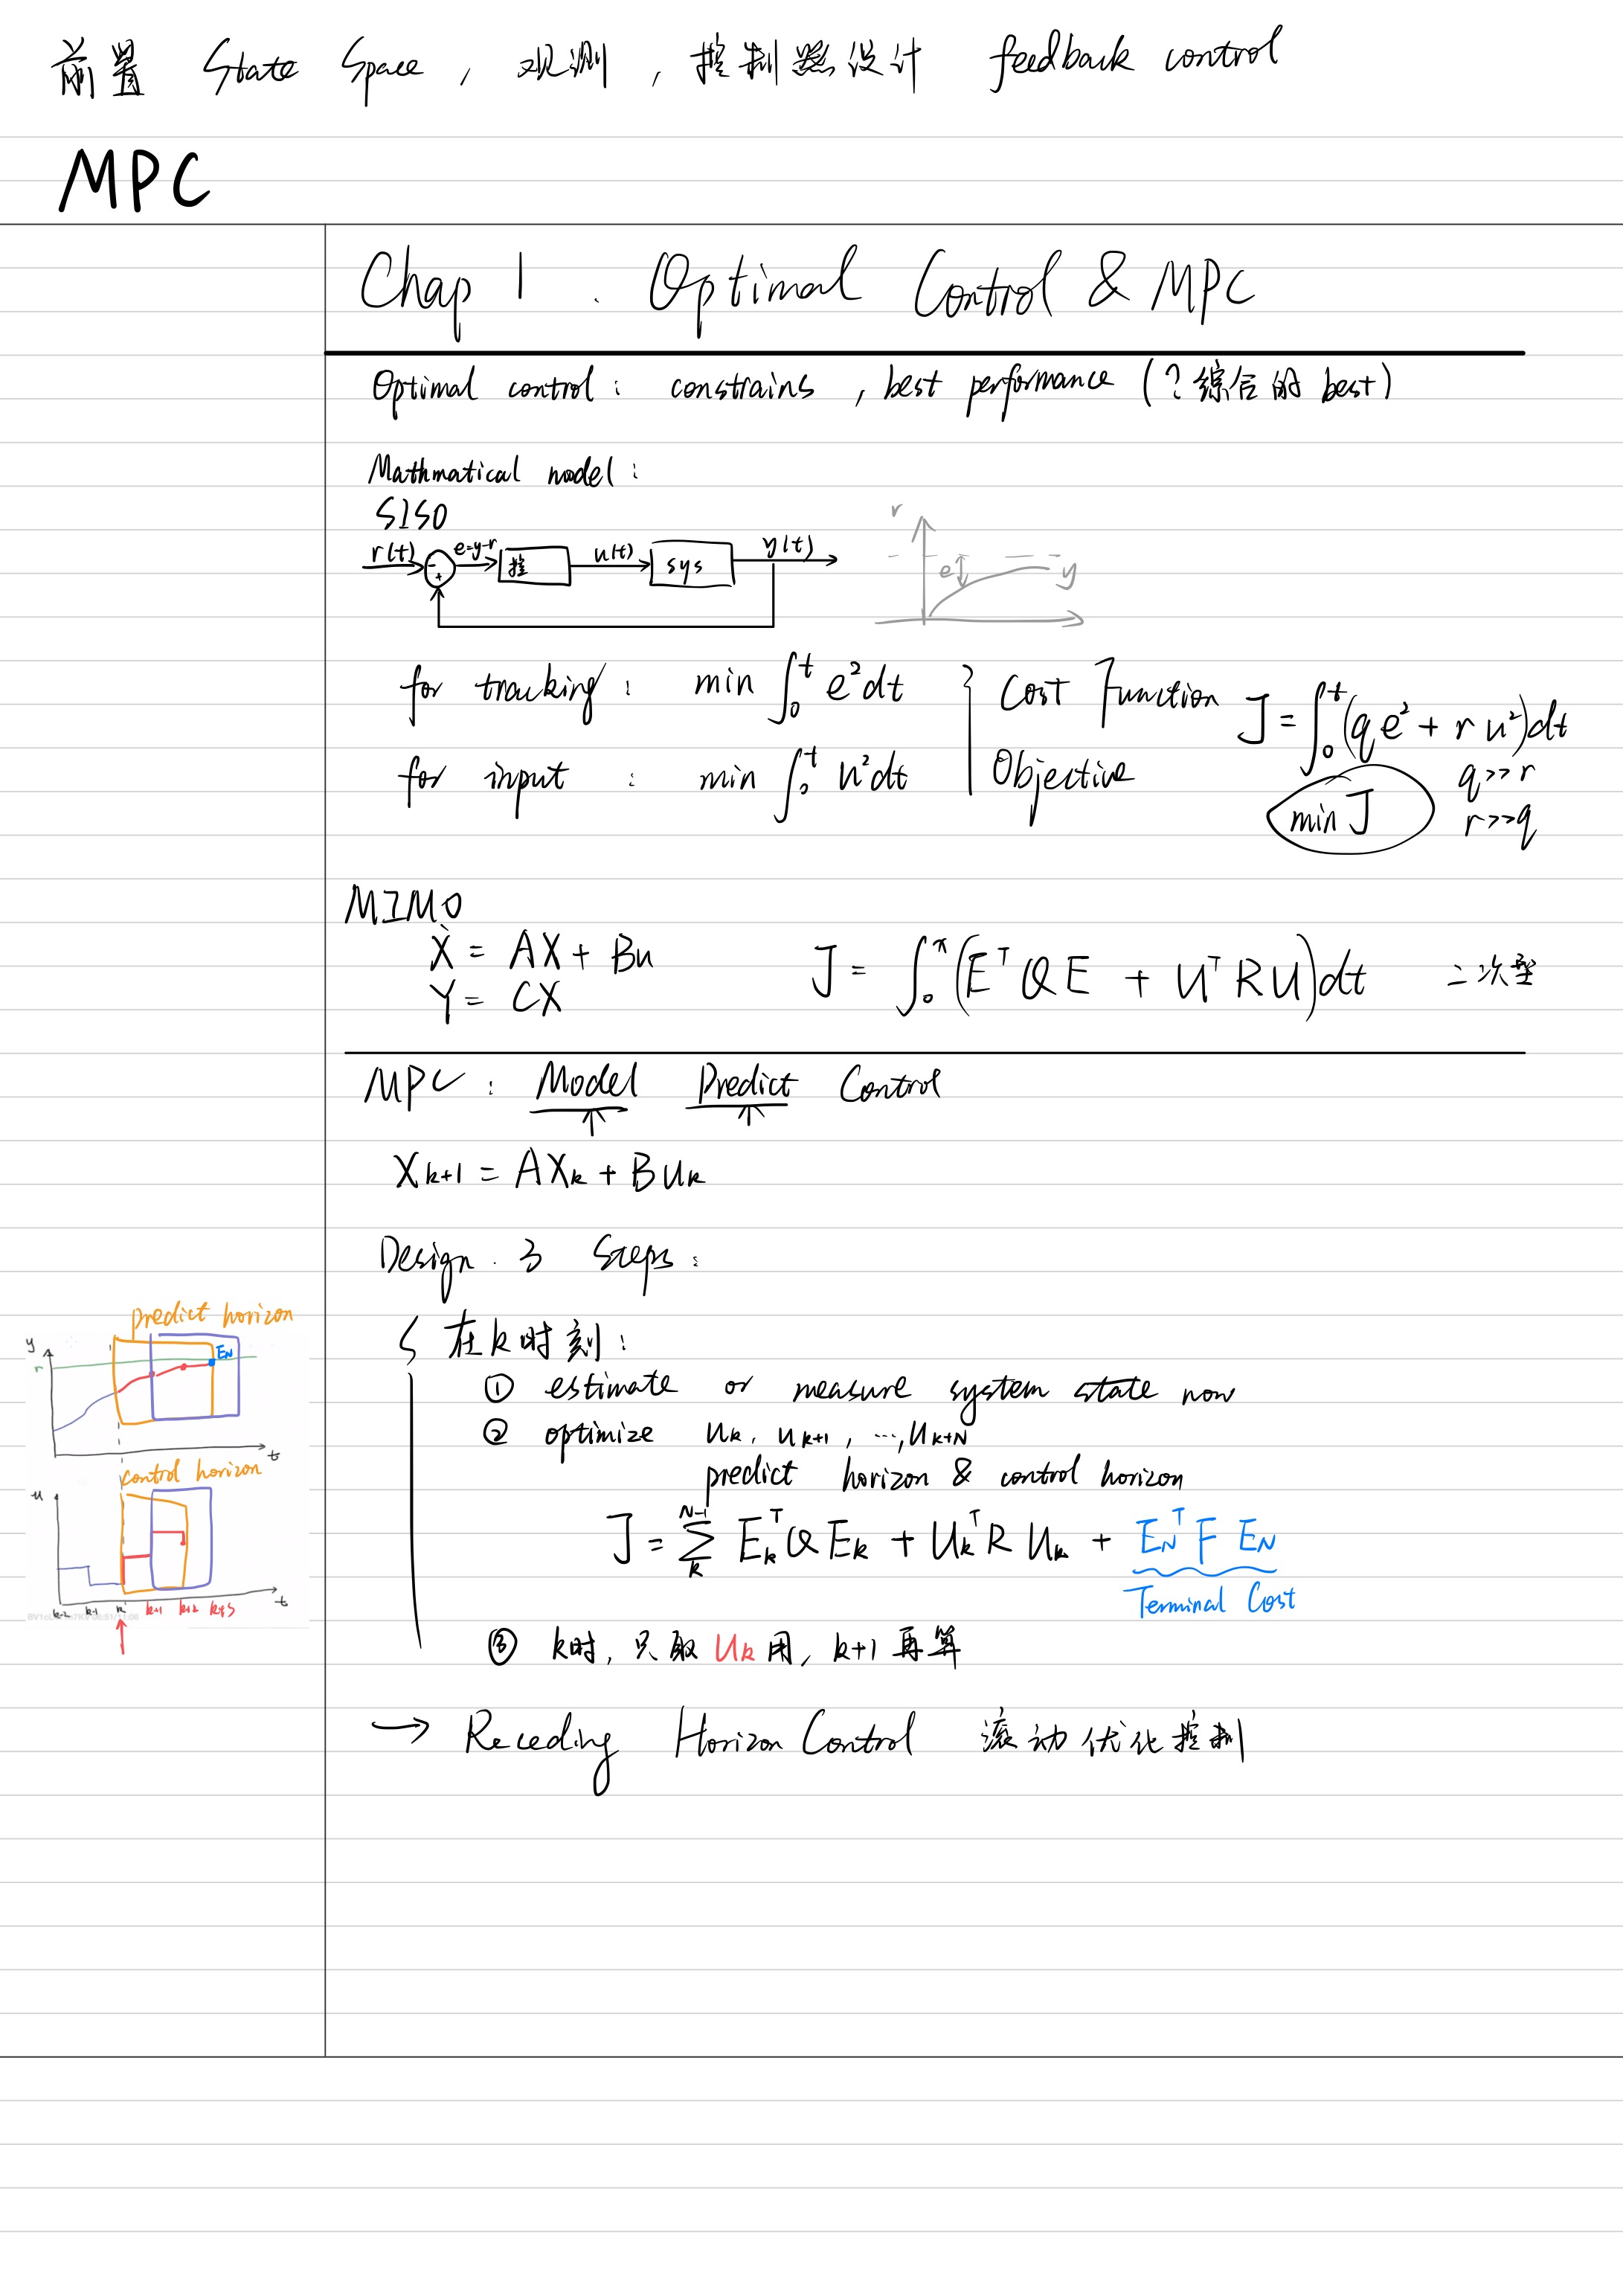 前置 State Space , 观测 , 控制器设计 feedback control
MPC
Chap 1 . Optimal Control & MPC
Optimal control : constrains , best performance (? 综合的 best)
Mathmatical model :
SISO
r(t) - + e=y-r 控 u(t) sys y(t)
r e y
for tracking : min ∫₀ᵗ e²dt } Cost Function J = ∫₀ᵗ (qe² + ru²)dt
for input : min ∫₀ᵗ u²dt Objective q>>r
min J r>>q
MIMO
Ẋ = AX + Bu J = ∫₀^π (EᵀQE + UᵀRU)dt 二次型
Y = CX
MPC : Model Predict Control
↑ ↑
X_{k+1} = AX_k + BU_k
Design . 3 Steps :
在k时刻 :
① estimate or measure system state now
② optimize U_k, U_{k+1}, ..., U_{k+N}
predict horizon & control horizon
J = Σ_k^{N-1} E_kᵀQE_k + U_kᵀRU_k + E_NᵀFE_N
Terminal Cost
③ k时, 只取 U_k 用, k+1 再算
→ Receding Horizon Control 滚动优化控制
predict horizon
y r E_N t
control horizon
u t
k-2 k-1 k k+1 k+2 k+3